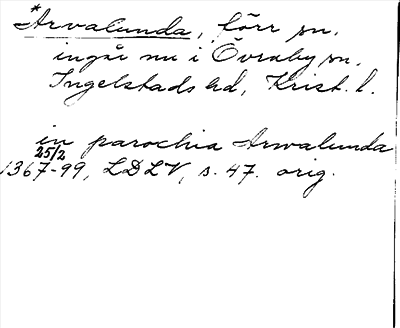 *Arvalunda, förr sn.
ingår nu i Övraby sn.
Ingelstads hd, Krist. l.
in parochia Arwalunda
25/2
1367-99, LDLV, s. 47. orig.